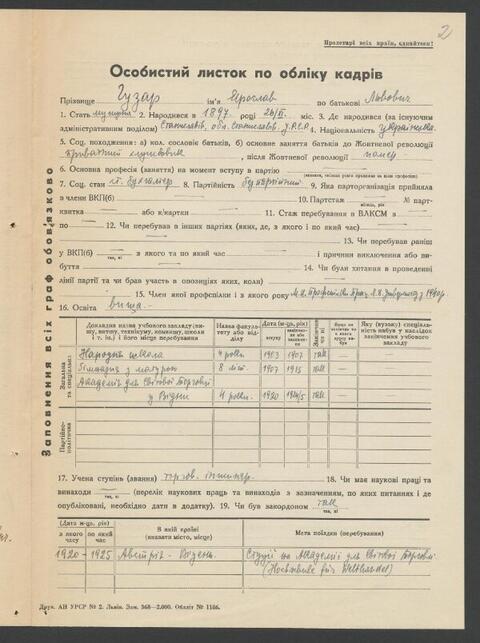 2
Пролетарі всіх країн, єднайтеся!
Особистий листок по обліку кадрів
Прізвище Гузар ім'я Ярослав по батькові Львович
1. Стать мужеська 2. Народився в 1897 році 26/II міс. 3. Де народився (за існуючим
адміністративним поділом) Станиславів, обл. Станиславів. У.Р.С.Р. 4. Національність українська
5. Соц. походження: а) кол. сословіє батьків, б) основне заняття батьків до Жовтневої революції
приватний службовик, після Жовтневої революції помер
6. Основна професія (заняття) на момент вступу в партію —
7. Соц. стан ст. бухгальтер 8. Партійність безпартійний 9. Яка парторганізація прийняла
в члени ВКП(б) — 10. Партстаж — № парт-
місяць, рік
квитка — або к/картки — 11. Стаж перебування в ВЛКСМ з —
по — 12. Чи перебував в інших партіях (яких, де, з якого і по який час) —
13. Чи перебував раніш
у ВКП(б) — з якого та по який час — і причини виключення або ви-
так, ні
буття — 14. Чи були хитання в проведенні
лінії партії та чи брав участь в опозиціях яких, коли) —
15. Член якої профспілки і з якого року
16. Освіта вища
Заповнення всіх граф обов'язково
Докладна назва учбового закладу (ви-
шу, втишу, технікуму, комвишу, школи
і т. ін.) і його місце перебування
Назва факуль-
тету або від-
ділу
Дата (м-ць, рік)
вступу
Закінчив чи ні
Яку (вузьку) спеціаль-
ність набув у наслідок
закінчення учбового
закладу
Загальна та спеціальна
Народна школа 4 роки 1903 1907 так
Гімназія з матурою 8 літ 1907 1915 так
Академія для Світової Торговлі
у Відні 4 роки 1920 1924/5 так
Партійно-політична
17. Учена ступінь (авання) торгов. інжинер. 18. Чи має наукові праці та
винаходи — (перелік наукових праць та винаходів з зазначенням, по яких питаннях і де
так, ні
опубліковані, необхідно дати в додатку). 19. Чи був закордоном так
так, ні
Дата (м-ць, рік)
з якого часу
по який час
В якій країні
(вказати місто, місце)
Мета поїздки (перебування)
1920 — 1925 Австрія - Відень. Студії на Академії для Світової Торговлі
(Hochschule für Welthandel)
Друк. АН УРСР № 2. Львів. Зам. 368—2.000. Обліт № 1186.